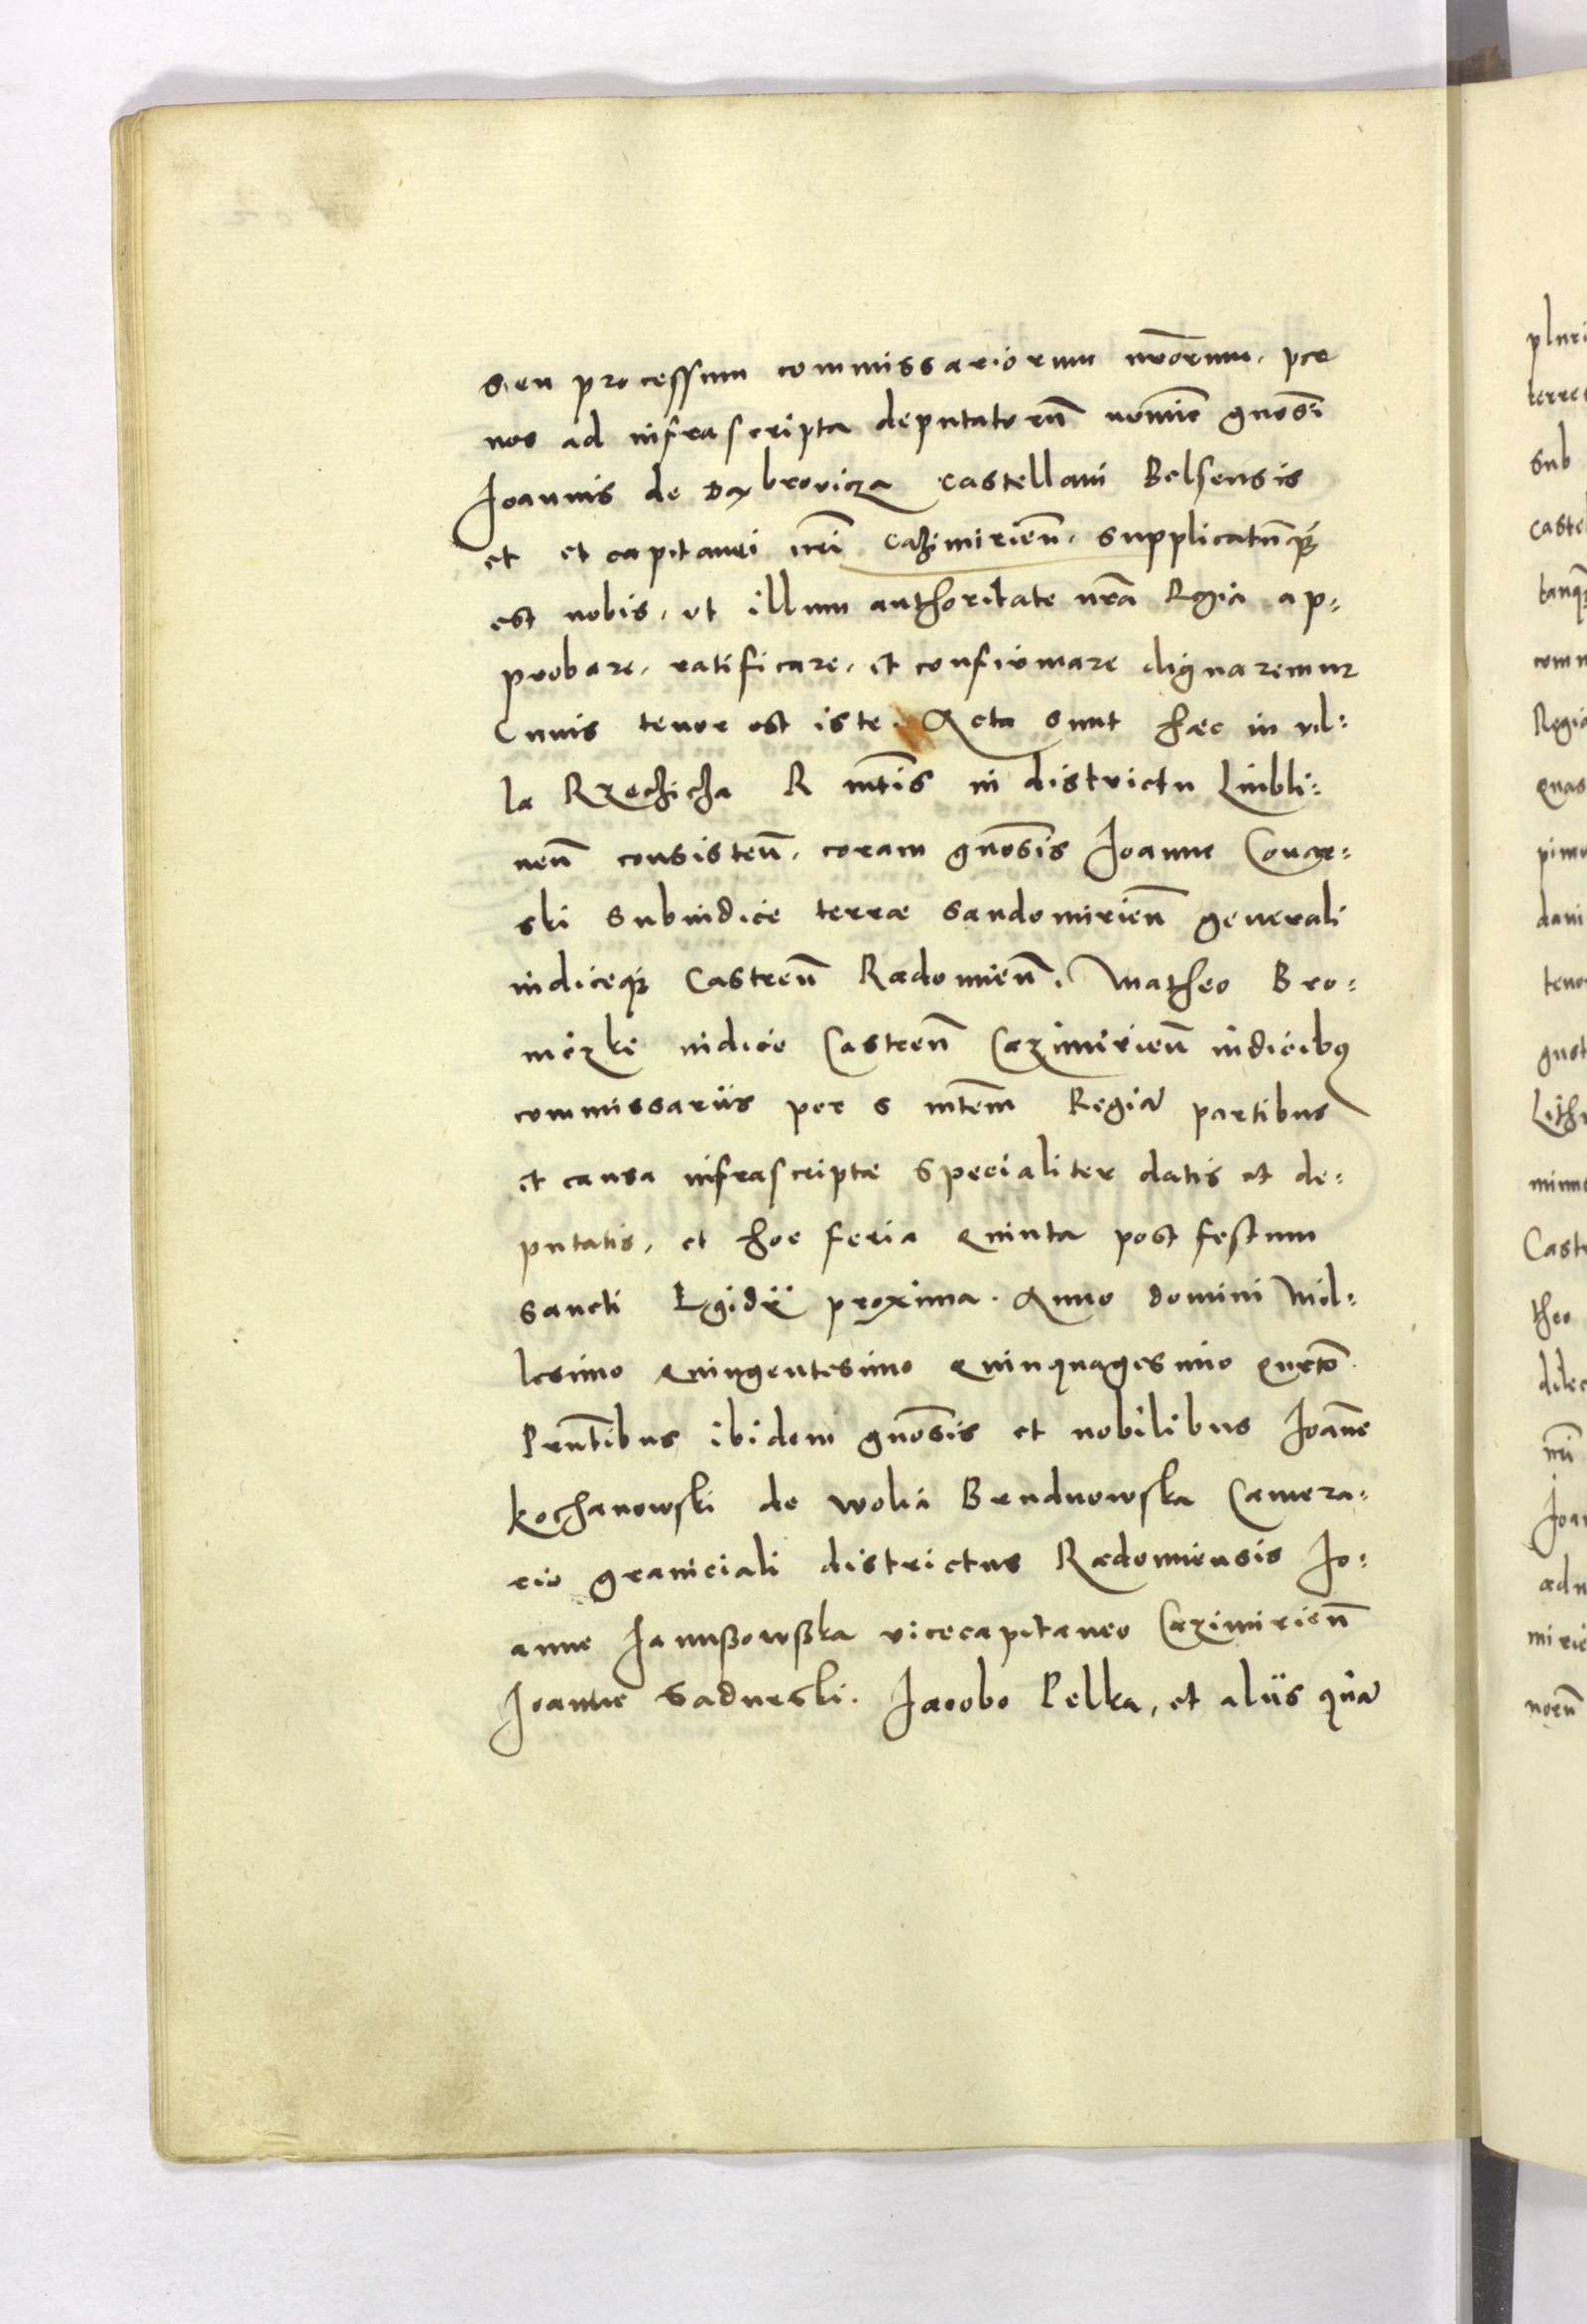 seu processum commissariorum nr̃orum. per
nos ad infrascripta deputatorũ nomĩe gnosĩ
Joannis de Dąbrovicza castellani Belsensis
et et capitanei nr̃i Cazimirien̄. supplicatũq̃
est nobis, ut illum authoritate nr̃a Regia ap=
probare, ratificare, et confirmare dignaremur
Cuius tenor est iste. Acta sunt hæc in vil=
la Rzechicha R mt̃is in districtu Lubli=
nen̄ consisten̄. coram gnosĩs Joanne Conar=
ski subiudice terræ Sandomirien̄ generali
iudiceq̃ Castren̄ Radomien̄. Matheo Bro=
iudice Castren̄ Cazimirien̄ iudicibꝯ
commissariis per S mt̃em Regiã partibus
et causa infrascripta specialiter datis et de=
putatis, et hoc feria quinta post festum
sancti Egidii proxima. Anno domini Mil=
lesimo quingentesimo quinquagesimo qurto.
Prñtibus ibidem gnosĩs et nobilibus Joañe
Kochanowski de Wolia Brudnowska Camera=
rio graniciali districtus Radomiensis Jo=
anne Janußowßka vicecapitaneo Cazimirien̄
Joanne Sadurski. Jacobo Pelka, et aliis qũa
pluri
terre
sub
caste
tanq̃
comm
Regia
quas
pimu
dani
teno
gust
Lith
minu
Cast
theo
dilec
nr̃i
Joan
adn
mirie
norũ